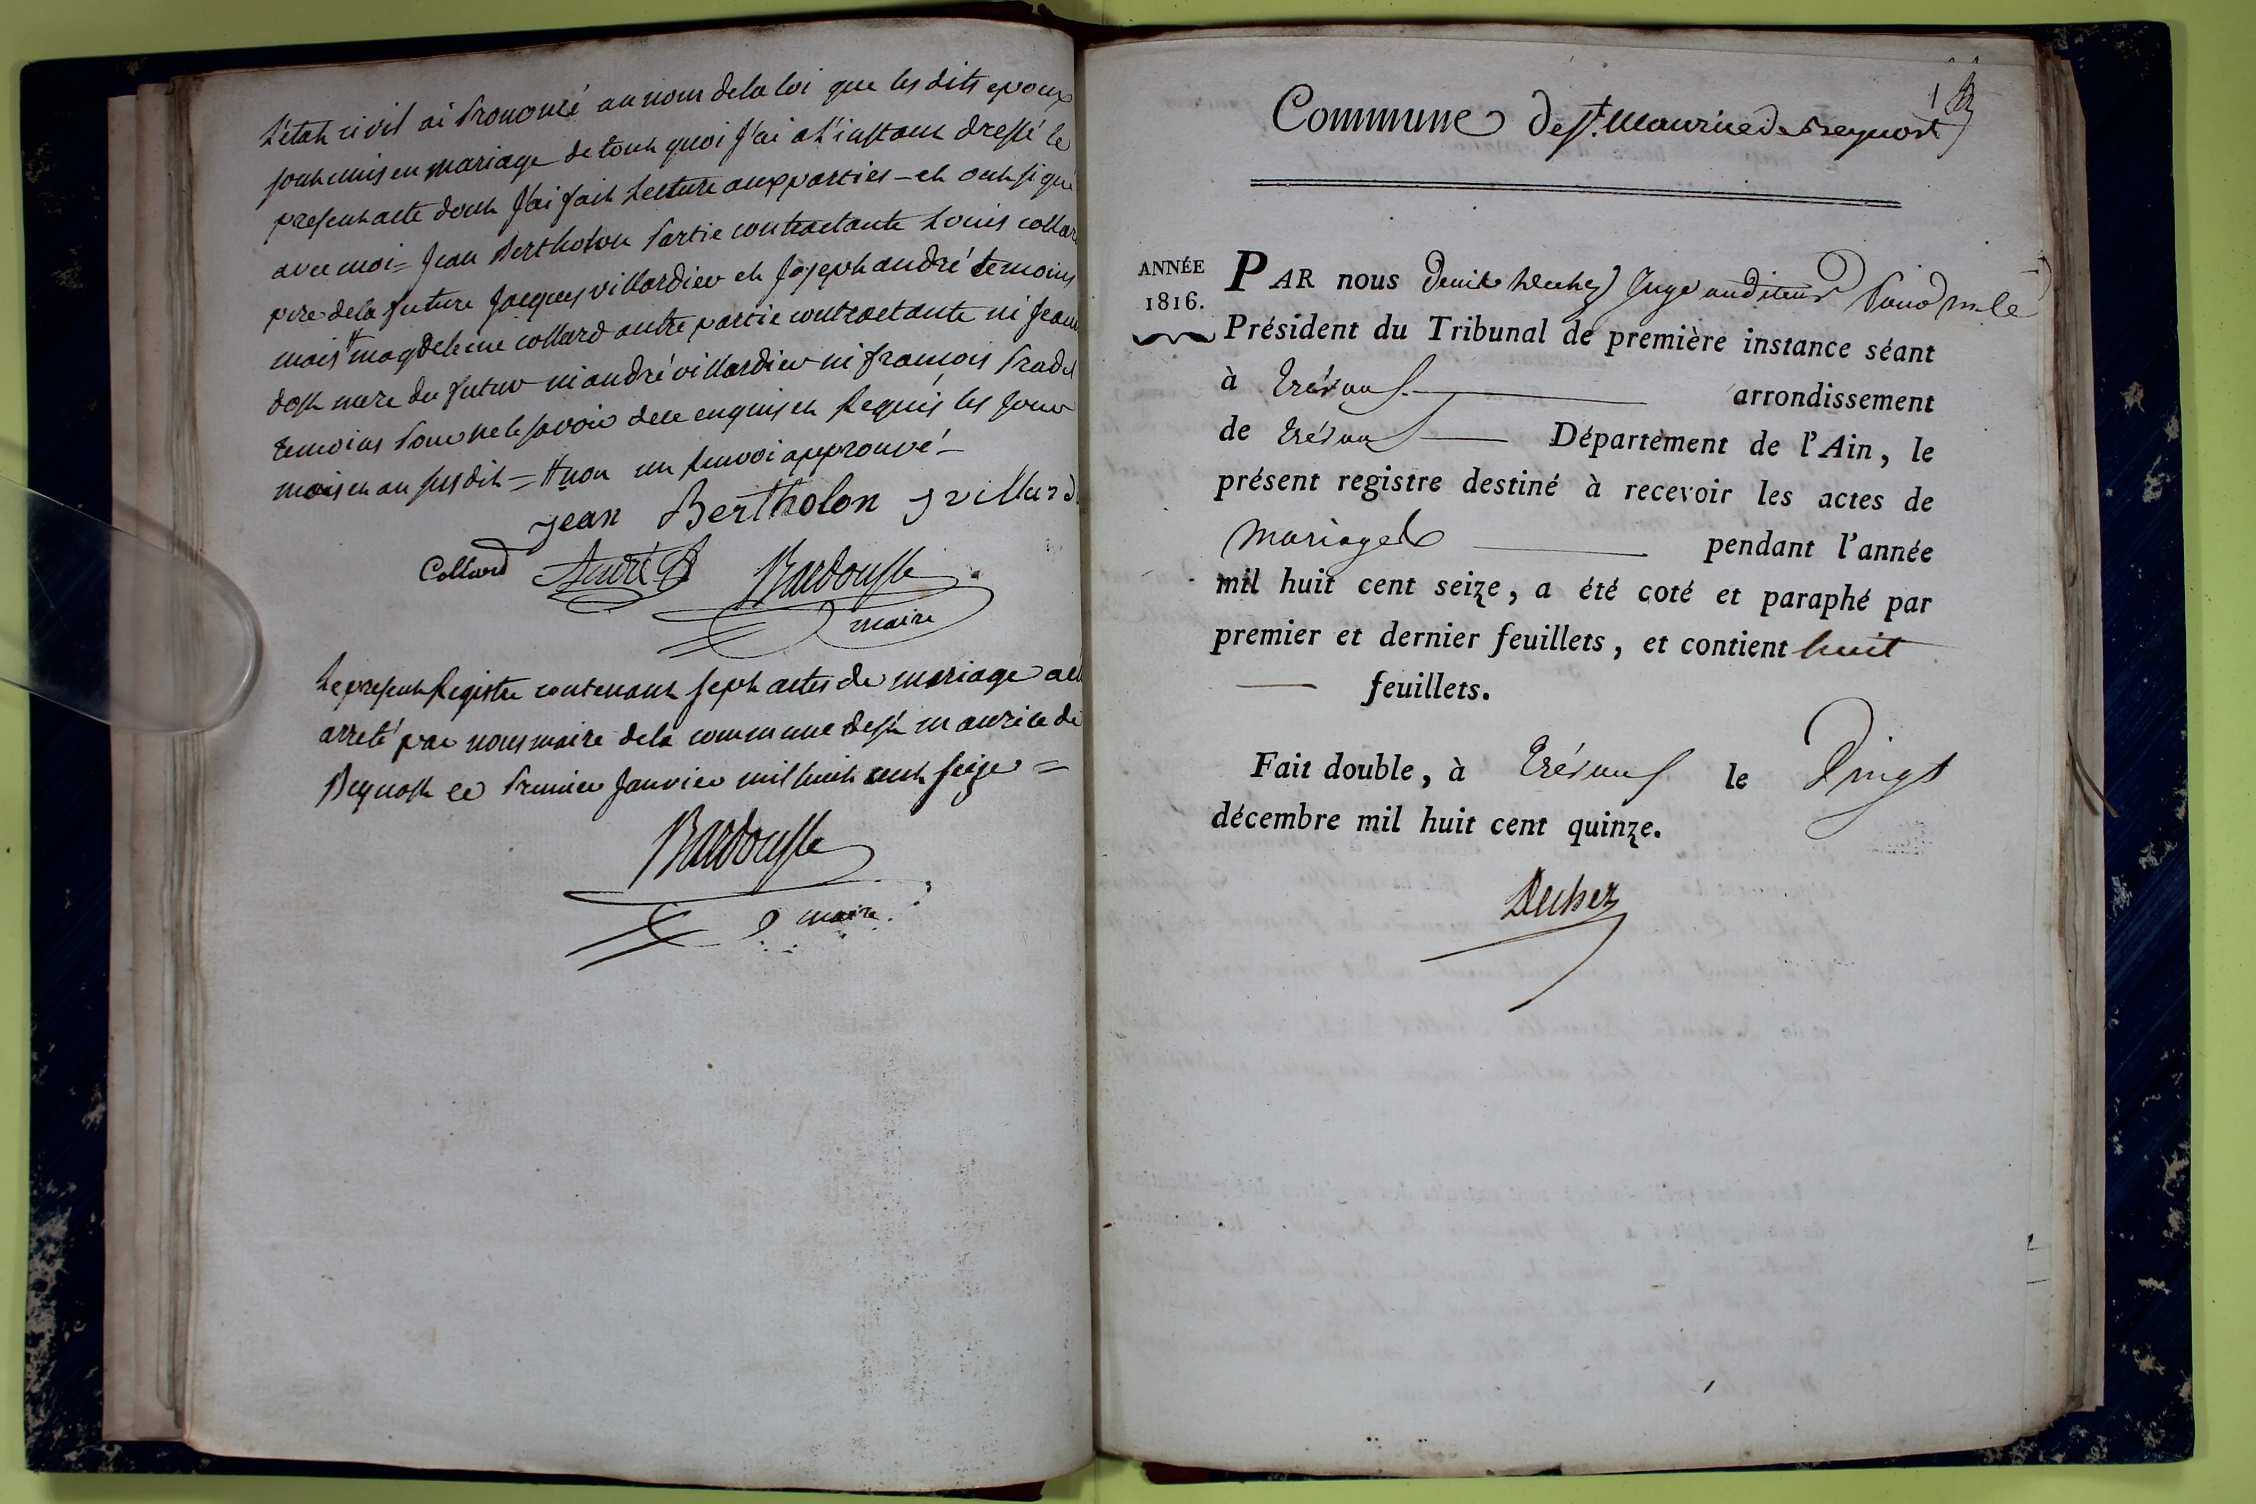 L'état civil ai Prononcé au nom de la loi que les dits epoux
sont unis en mariage de tout quoi J'ai a L'instant dressé le
present acte dont J'ai fait Lecture aux parties - et ont signé
avec moi = Jean Bertholon Partie contractante Louis collar
pere de la future Jacques villardier et Joseph andré temoins
mais # magdeleine collard autre partie contractante ni Jeanne
dost mere du futur ni andré villardier ni françois Pradel
temoins Pour ne le savoir de ce enquis et Requis les Jour
mois et an susdit = # non un Renvoi approuvé -
jean Bertholon J villard
Collard André Bardousse
maire
Le present Registre contenant sept actes de mariage a été
arreté par nous maire de la commune de St maurice de
Beynost ce Premier Janvier mil huit cent seize =
Bardousse
maire
1
Commune de St. Maurice de Beynost
ANNÉE
1816.
PAR nous Juge auditeur Pour m. le
Président du Tribunal de première instance séant
à Trévoux arrondissement
de Trévoux Département de l'Ain, le
présent registre destiné à recevoir les actes de
Mariages pendant l'année
mil huit cent seize, a été coté et paraphé par
premier et dernier feuillets, et contient huit
feuillets.
Fait double, à Trévoux le Vingt
décembre mil huit cent quinze.